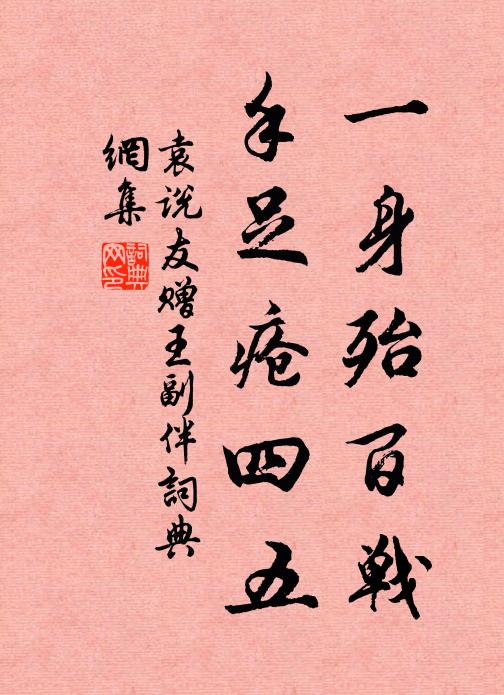 一身殆百戦
手足疮四五
袁说友赠王副伴詞典
網集
詞典
网印